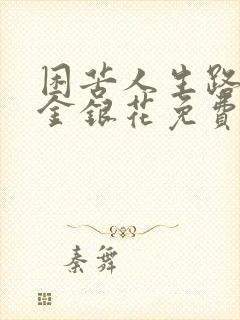 困苦人生路
金银花免費
秦舞